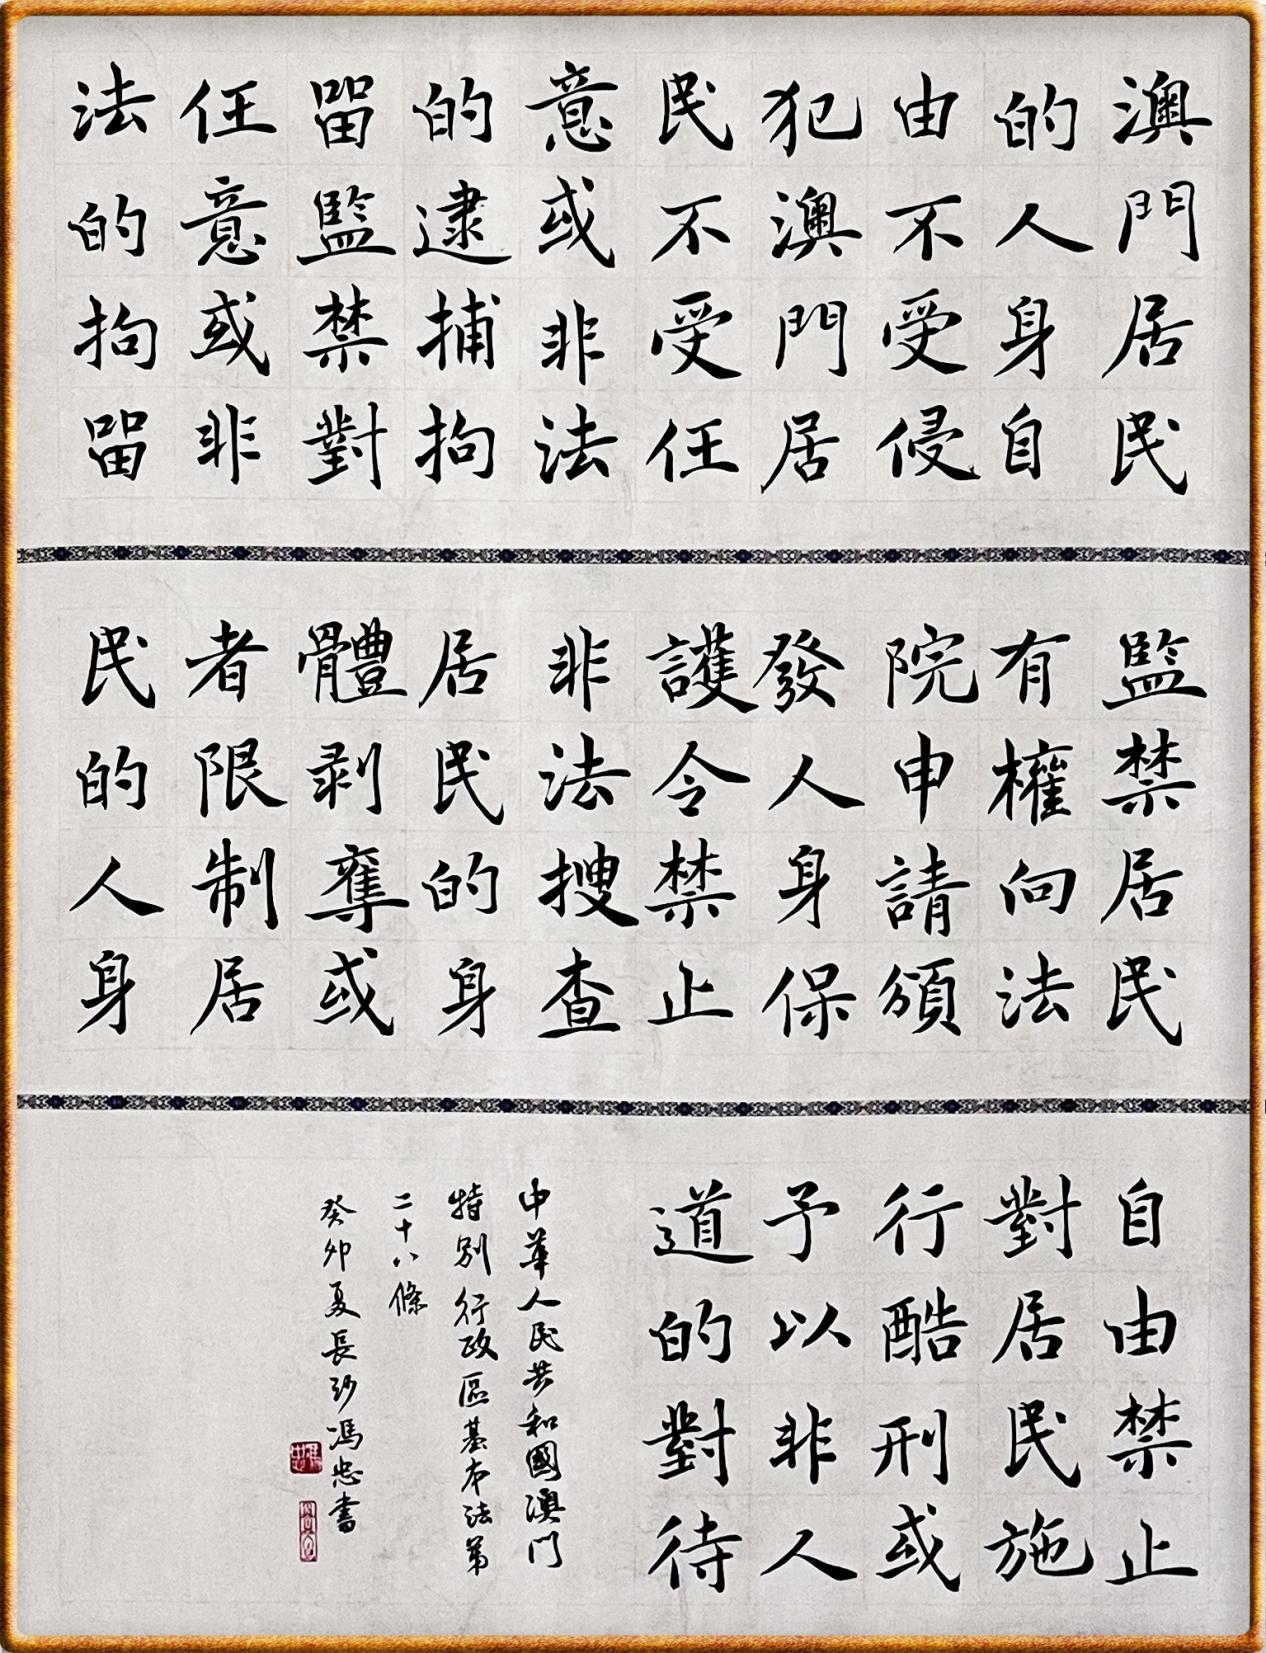 澳門居民
的人身自
由不受侵
犯澳門居
民不受任
意或非法
的逮捕拘
留監禁對
任意或非
法的拘留
監禁居民
有權向法
院申請頒
發人身保
護令禁止
非法搜查
居民的身
體剥奪或
者限制居
民的人身
自由禁止
對居民施
行酷刑或
予以非人
道的對待
中華人民共和國澳門
特别行政區基本法第
二十八條
癸卯夏長沙馮忠書